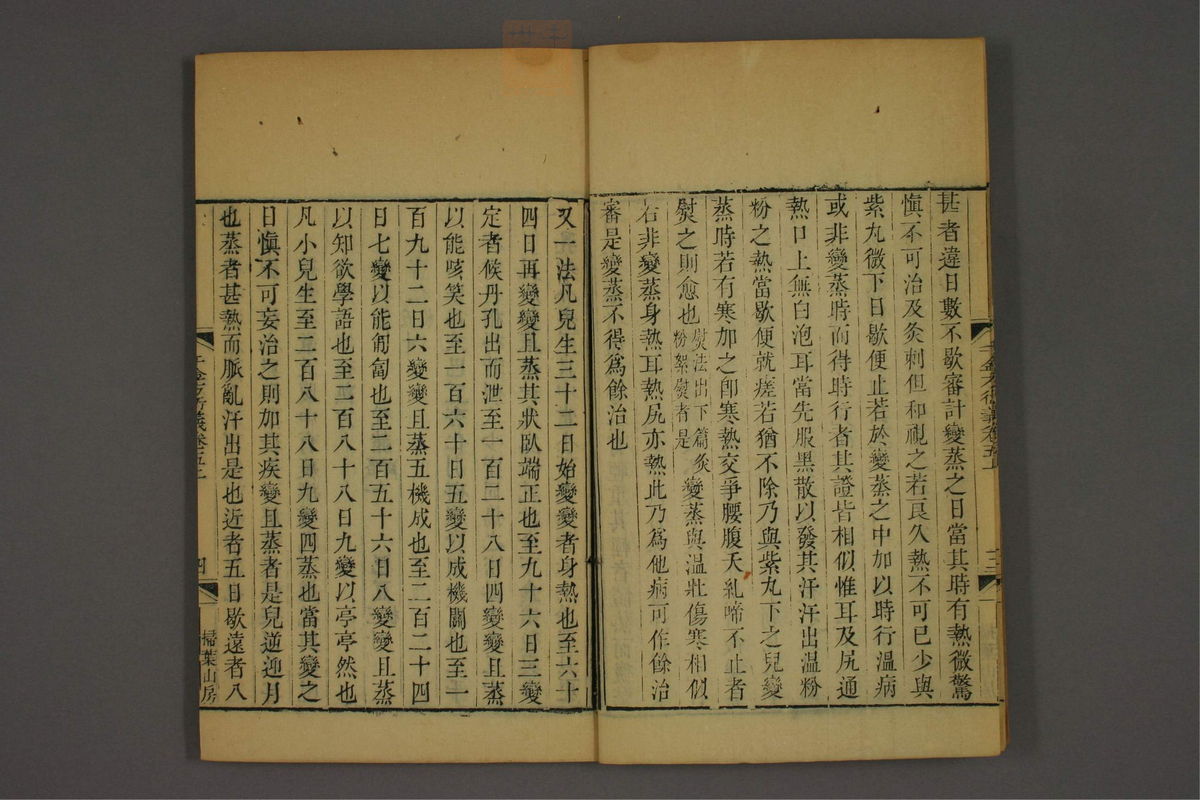 甚者違日數不歇審計變蒸之日當其時有熱微驚
愼不可治及灸刺但和視之若良久熱不可已少與
紫丸微下日歇便止若於變蒸之中加以時行溫病
或非變蒸時而得時行者其證皆相似惟耳及尻通
熱口上無白泡耳當先服黑散以發其汗汗出溫粉
粉之熱當歇便就瘥若猶不除乃與紫丸下之兒變
蒸時若有寒加之卽寒熱交爭腰腹夭糺啼不止者
熨之則愈也熨法出下篇灸粉絮熨者是變蒸與溫壯傷寒相似
若非變蒸身熱耳熱尻亦熱此乃爲他病可作餘治
審是變蒸不得爲餘治也
又一法凡兒生三十二日始變變者身熱也至六十
四日再變變且蒸其狀臥端正也至九十六日三變
定者候丹孔出而泄至一百二十八日四變變且蒸
以能咳笑也至一百六十日五變以成機關也至一
百九十二日六變變且蒸五機成也至二百二十四
日七變以能匍匐也至二百五十六日八變變且蒸
以知欲學語也至二百八十八日九變以亭亭然也
凡小兒生至二百八十八日九變四蒸也當其變之
日愼不可妄治之則加其疾變且蒸者是兒逆迎月
也蒸者甚熱而脈亂汗出是也近者五日歇遠者八
千金方衍義卷五上
四
掃葉山房